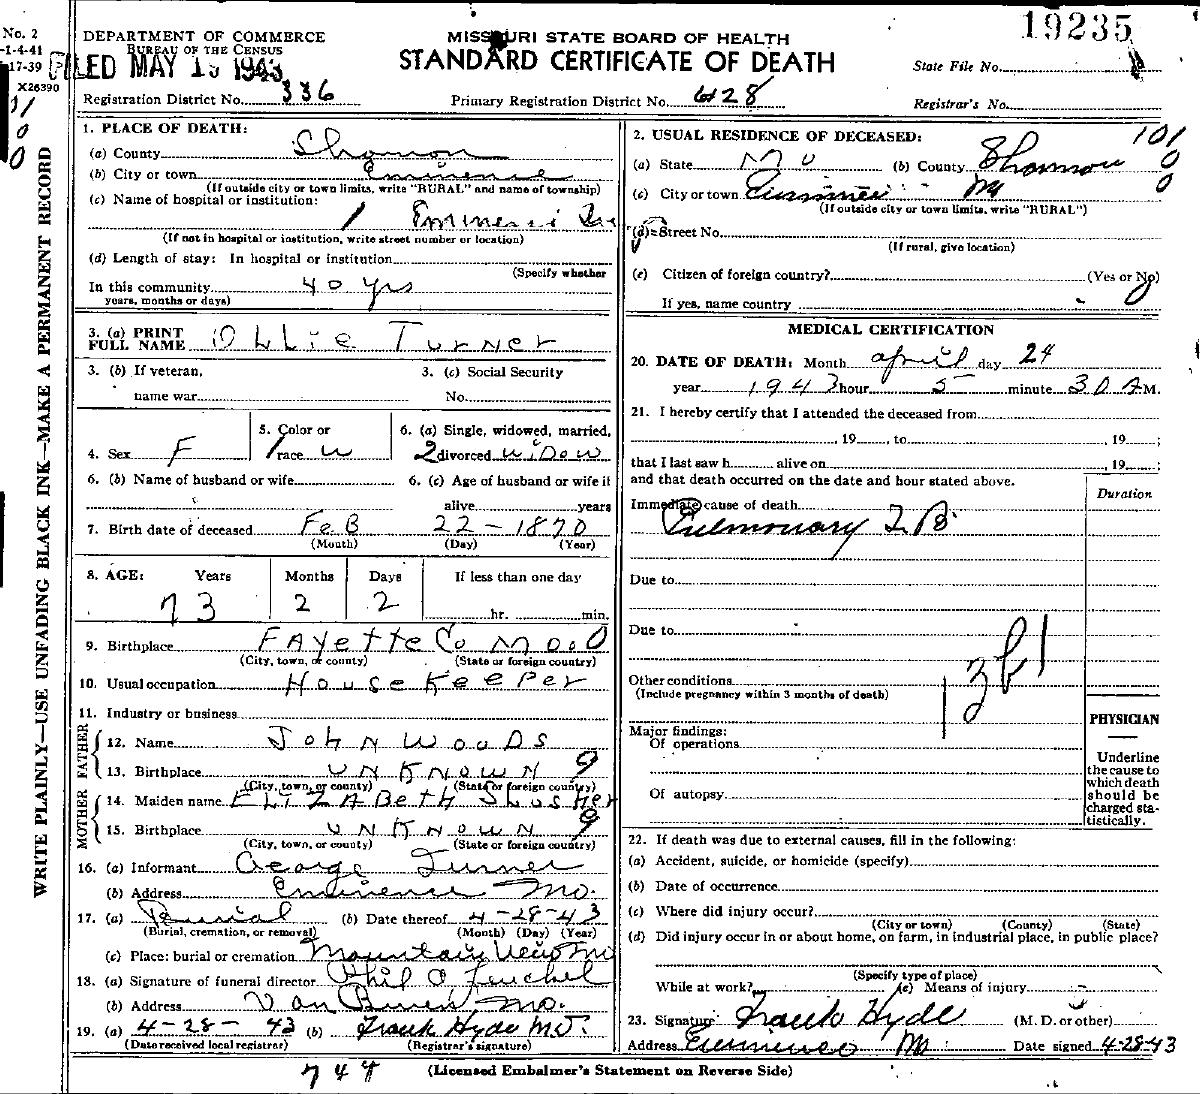 No. 2
-1-4-41
-17-39
X26390
DEPARTMENT OF COMMERCE
BUREAU OF THE CENSUS
FILED MAY 15 1943
Registration District No. 336
MISSOURI STATE BOARD OF HEALTH
STANDARD CERTIFICATE OF DEATH
Primary Registration District No. 428
19235
State File No.
Registrar's No.
WRITE PLAINLY—USE UNFADING BLACK INK—MAKE A PERMANENT RECORD
1. PLACE OF DEATH:
(a) County Shannon
(b) City or town Eminence
(If outside city or town limits, write "RURAL" and name of township)
(c) Name of hospital or institution:
(If not in hospital or institution, write street number or location)
(d) Length of stay: In hospital or institution
(Specify whether
In this community 40 yrs
years, months or days)
3. (a) PRINT FULL NAME OLLIE TURNER
3. (b) If veteran, name war
3. (c) Social Security No.
4. Sex F
5. Color or race W
6. (a) Single, widowed, married, divorced WIDOW
6. (b) Name of husband or wife
6. (c) Age of husband or wife if alive years
7. Birth date of deceased FEB 22-1870
(Month) (Day) (Year)
8. AGE: Years Months Days If less than one day
73 2 2 hr. min.
9. Birthplace FAYETTE Co MO.
(City, town, or county) (State or foreign country)
10. Usual occupation HOUSEKEEPER
11. Industry or business
FATHER
12. Name JOHN WOODS
13. Birthplace UNKNOWN 9
(City, town, or county) (State or foreign country)
MOTHER
14. Maiden name ELIZABETH SLUSHER
15. Birthplace UNKNOWN 9
(City, town, or county) (State or foreign country)
16. (a) Informant George Turner
(b) Address Eminence Mo.
17. (a) Burial (b) Date thereof 4-28-43
(Burial, cremation, or removal) (Month) (Day) (Year)
(c) Place: burial or cremation Mountain View Mo
18. (a) Signature of funeral director
(b) Address Van Buren Mo.
19. (a) 4-28-43 (b) Frank Hyde M.D.
(Date received local registrar) (Registrar's signature)
2. USUAL RESIDENCE OF DECEASED: 101
(a) State Mo (b) County Shannon 0
(c) City or town Eminence Mo 0
(If outside city or town limits, write "RURAL")
(d) Street No.
(If rural, give location)
(e) Citizen of foreign country? (Yes or No)
If yes, name country 0
MEDICAL CERTIFICATION
20. DATE OF DEATH: Month April day 24
year 1943 hour 5 minute 30 A M.
21. I hereby certify that I attended the deceased from
, 19 , to , 19 ;
that I last saw h alive on , 19 ;
and that death occurred on the date and hour stated above.
Duration
Immediate cause of death
Pulmonary T.B.
Due to
Due to
Other conditions
(Include pregnancy within 3 months of death)
Major findings:
Of operations
Of autopsy
PHYSICIAN
Underline the cause to which death should be charged statistically.
22. If death was due to external causes, fill in the following:
(a) Accident, suicide, or homicide (specify)
(b) Date of occurrence
(c) Where did injury occur?
(City or town) (County) (State)
(d) Did injury occur in or about home, on farm, in industrial place, in public place?
(Specify type of place)
While at work? (e) Means of injury
23. Signature Frank Hyde (M. D. or other)
Address Eminence Mo Date signed 4-28-43
(Licensed Embalmer's Statement on Reverse Side)